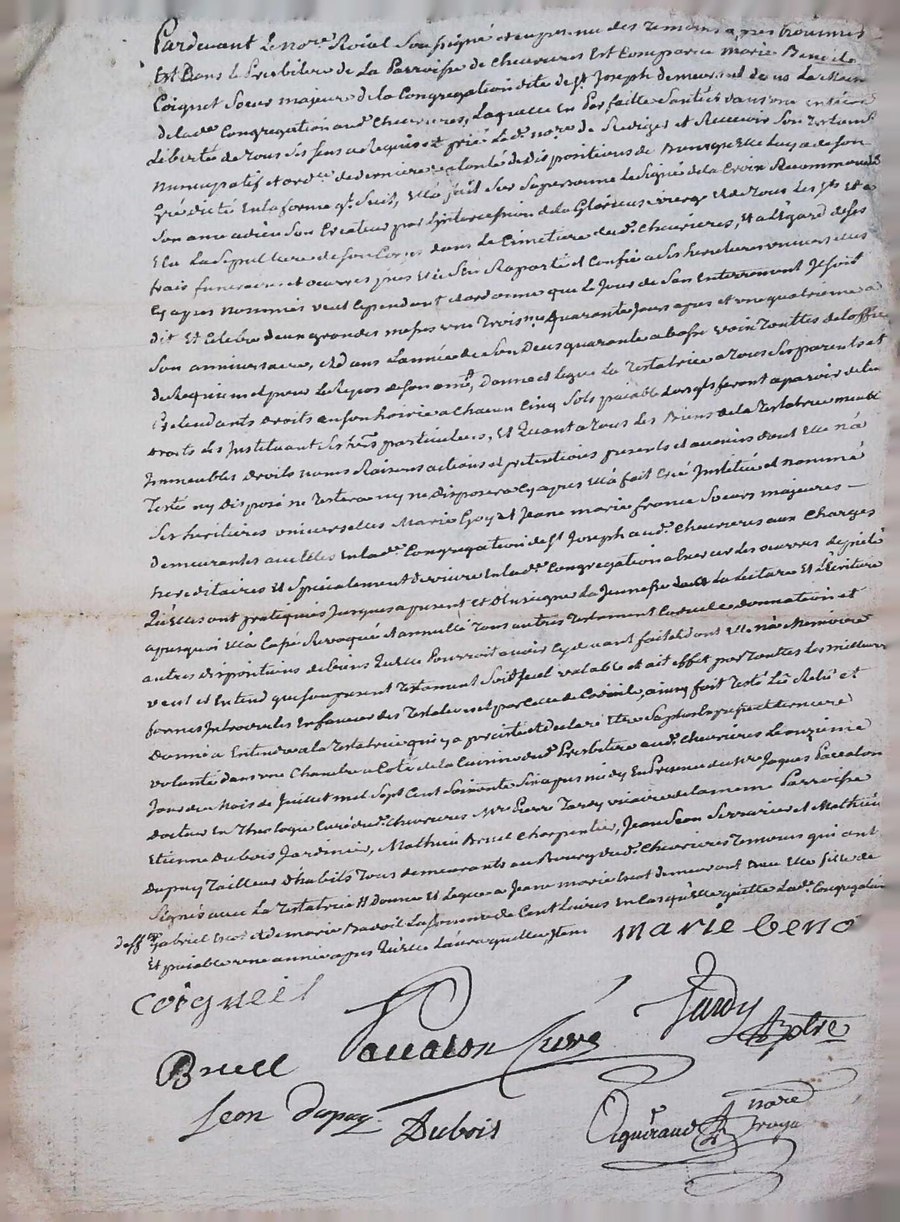 Pardevant le nore. Roial soussigné et en presence des temoins apres nommés
Est Dans le Presbitere de La Parroisse de Chevrieres Est Comparue Marie Benoite
Coignet Soeur majeure de la Congregation dite de st. Joseph demeurant dans la
de lade. Congregation aud. Chevrieres, Laquelle en Parfaitte Santé et dans une entiere
Liberté de tous ses sens a Requis et prié Le d. nore. de Rediger et Recevoir Son Testament
Nuncupatif et ordre. de derniere volonté de dispositions de quelle Luy a de son
gré dicté En la forme qt. suit, Elle a fait Sur Sa personne Le Signe de la Croix Recommandé
Son ame a dieu Son Createur par L'intercession de la Glorieuse vierge et de Tous Les sts. Et a
Elu La Sepulture de son Corps dans Le Cimetiere dud. Chevrieres, et a L'égard de ses
frais funeraires et oeuvres pies Elle s'en Raporte et Confie a Ses heritieres universelles
cy apres nommées veut Cependant et ordonne que le Jour de Son Enterrement Il soit
dit Et Celebré deux grandes messes une Troisme. Quarante Jours apres et une quatrieme a
Son anniversaire, Et dans L'année de Son Deces quarante a basse voix Touttes de L'office
de Requiem et pour le Repos de son ame, Donne et Legue La Testatrice a Tous Ses parents et
Pretendants droits en son hoirie a Chacun Cinq Sols paiable Lorsqls feront aparoir de leurs
droits Les Instituant Ses herrs. particuliers, Et Quant a Tous Les Biens de la Testatrice meubles
Immeubles Droits noms Raisons actions et pretentions presents et avenirs dont Elle n'a
Testé ny disposé ne Testera ny ne disposera Cy apres Elle a fait Créé Institué et nommé
Ses heritieres universelles Marie Goy et Jeane marie france Soeurs majeures
demeurantes avec Elles En lade. Congregation de st Joseph aud. Chevrieres aux Charges
hereditaires Et Specialement de vivre En lade. Congregation a Exercer Les oeuvres de pieté
Qu'elles ont pratiqués Jusques a present Et d'Enseigner La Jeunesse La Lecture Et L'Ecriture
apres quoi Elle a Cassé Revoqué et annullé Tous autres Testament donnation et
autres dispositions de biens Qu'elle Pourroit avoir Cy devant faits dont Elle n'a Memoire
veut et Entend que son present Testament Soit Seul valable et ait Effet par Touttes Les meilleures
formes Introduites En faveur des Testateurs et par Cause de Codicile, ainsy fait Testé Lu Relu et
Donné a Entendre a la Testatrice qui y a percisté et declaré Etre Sa derniere
volonté dans une Chambre a Coté de la Cuisine dud. Presbitere aud. Chevrieres Le onzieme
Jour du Mois de Juillet mil Sept Cent Soixante Six apres midy En Presence de Mre Jaques Pacealon
docteur En Theologie Curé dud. Chevrieres Mre Pierre Tardy vicaire de la meme Parroisse
Etienne Dubois Jardinier, Mathieu Bruel Charpentier, Jean Leon Serrurier et Mathieu
Dupuy Tailleur d'habits Tous demeurants au Bourg dud. Chevrieres Temoins qui ont
Signés avec La Testatrice Donne Et Legue a Jeane marie Escot demeurant avec Elle fille de
deffts. Gabriel Escot et de marie Bavoil La Somme de Cent Livres En Cas qu'elle quitte Lade. Congregation
Et paiable une année apres Qu'elle L'aura quittée,
marie beno
coigneit
Bruel Paccalon Curé Tardy ptre
Leon Dupuy Dubois nore Royal